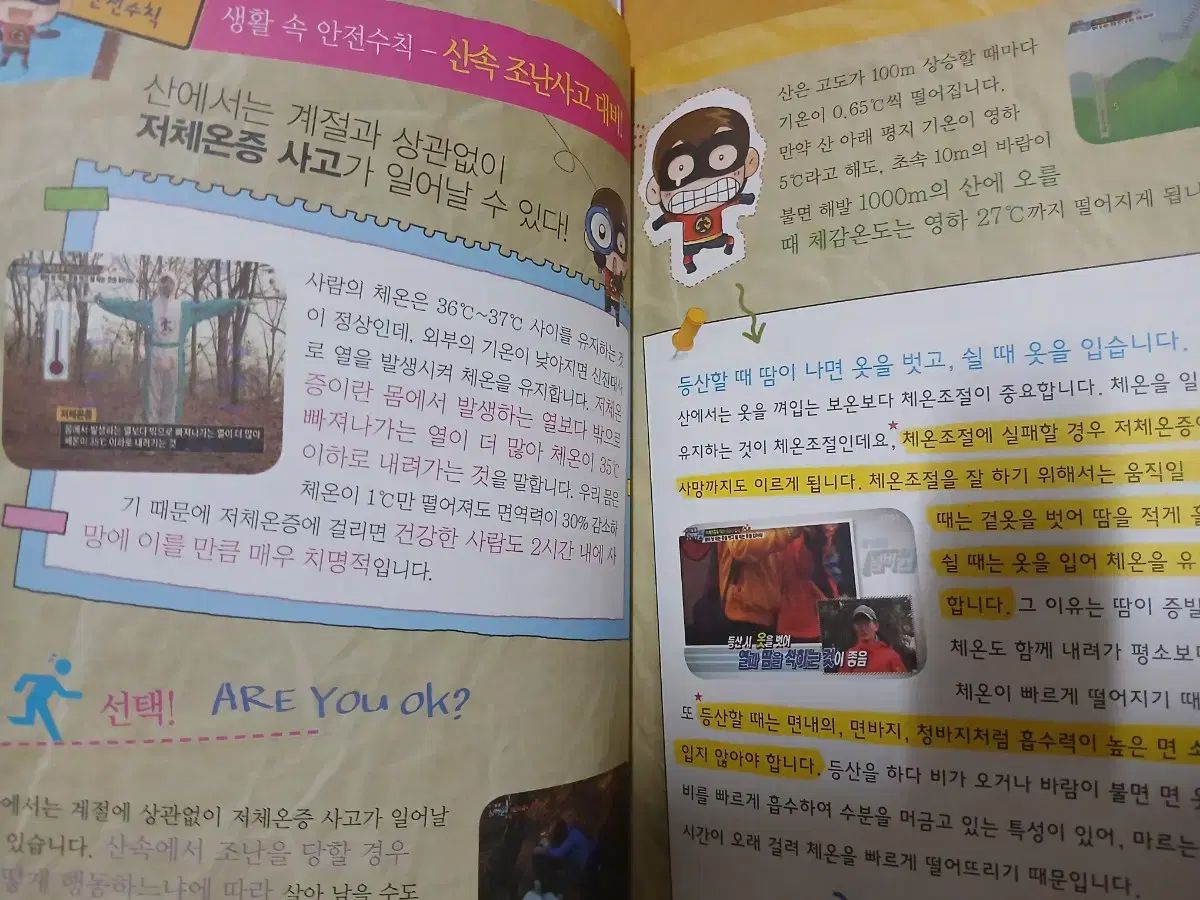 안전수칙
생활 속 안전수칙 – 산속 조난사고 대비!
산에서는 계절과 상관없이
저체온증 사고가 일어날 수 있다!
사람의 체온은 36℃~37℃ 사이를 유지하는 것
이 정상인데, 외부의 기온이 낮아지면 신진대사
로 열을 발생시켜 체온을 유지합니다. 저체온
증이란 몸에서 발생하는 열보다 밖으로
빠져나가는 열이 더 많아 체온이 35℃
이하로 내려가는 것을 말합니다. 우리 몸은
체온이 1℃만 떨어져도 면역력이 30% 감소하
기 때문에 저체온증에 걸리면 건강한 사람도 2시간 내에 사
망에 이를 만큼 매우 치명적입니다.
저체온증
몸에서 발생하는 열보다 밖으로 빠져나가는 열이 더 많아
체온이 35℃ 이하로 내려가는 것
선택! ARE YOU OK?
에서는 계절에 상관없이 저체온증 사고가 일어날
있습니다. 산속에서 조난을 당할 경우
떻게 행동하느냐에 따라 살아 남을 수도
산은 고도가 100m 상승할 때마다
기온이 0.65℃씩 떨어집니다.
만약 산 아래 평지 기온이 영하
5℃라고 해도, 초속 10m의 바람이
불면 해발 1000m의 산에 오를
때 체감온도는 영하 27℃까지 떨어지게 됩니
등산할 때 땀이 나면 옷을 벗고, 쉴 때 옷을 입습니다.
산에서는 옷을 껴입는 보온보다 체온조절이 중요합니다. 체온을 일
유지하는 것이 체온조절인데요, 체온조절에 실패할 경우 저체온증
사망까지도 이르게 됩니다. 체온조절을 잘 하기 위해서는 움직일
때는 겉옷을 벗어 땀을 적게
쉴 때는 옷을 입어 체온을 유
합니다. 그 이유는 땀이 증발
체온도 함께 내려가 평소보
체온이 빠르게 떨어지기 때
등산 시 옷을 벗어
열과 땀을 식히는 것이 좋음
또 등산할 때는 면내의, 면바지, 청바지처럼 흡수력이 높은 면
입지 않아야 합니다. 등산을 하다 비가 오거나 바람이 불면 면
비를 빠르게 흡수하여 수분을 머금고 있는 특성이 있어, 마르는
시간이 오래 걸려 체온을 빠르게 떨어뜨리기 때문입니다.